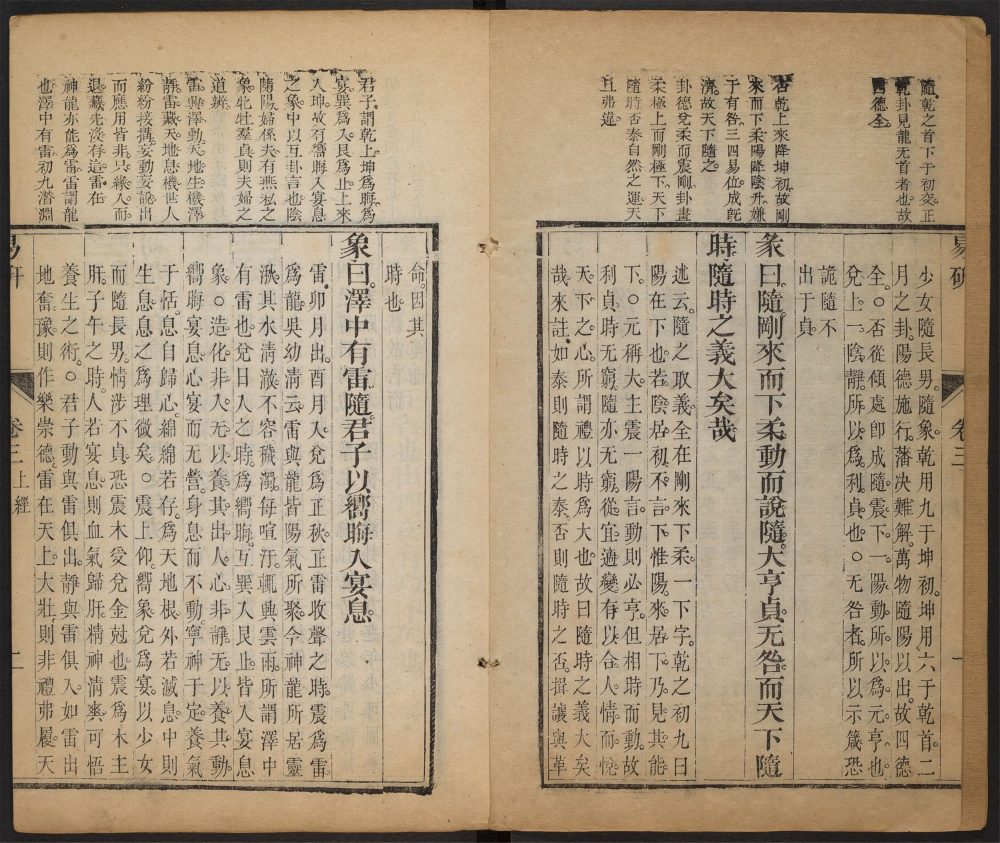 隨乾之首下于初爻正
乾卦見龍无首者也故
四德全
否乾上來降坤初故剛
來而下柔陽降陰升嫌
于有咎三四易位成旣
濟故天下隨之
卦德兌柔而震剛卦畫
柔極上而剛極下天下
隨時否泰自然之運天
且弗違
易研
卷三
一
少女隨長男隨象乾用九于坤初坤用六于乾首二
月之卦陽德施行藩決難解萬物隨陽以出故四德
全○否從傾處卽成隨震下一陽動所以爲元亨也
兌上一陰靜所以爲利貞也○无咎者所以示箴恐
詭隨不
出于貞
彖曰隨剛來而下柔動而說隨大亨貞无咎而天下隨
時隨時之義大矣哉
述云隨之取義全在剛來下柔一下字乾之初九日
陽在下也若陰居初不言下惟陽來居下乃見其能
下○元稱大主震一陽言動則必亨但相時而動故
利貞時无窮隨亦无窮從宜適變存以合人情而悅
天下之心所謂禮以時爲大也故曰隨時之義大矣
哉來註如泰則隨時之泰否則隨時之否揖讓與革
君子謂乾上坤爲晦爲
宴巽爲入艮爲止上來
入坤故有嚮晦入宴息
之象中以互卦言也陰
隨陽婦係夫有燕私之
象牝牡羣貞則夫婦之
道辨
雷興澤動天地生機澤
靜雷藏天地息機世人
紛紛接搆妄動妄說出
而應用皆非只緣入而
退藏先沒存這雷在
神龍亦能爲雷雷謂龍
也澤中有雷初九潛淵
命因其
時也
象曰澤中有雷隨君子以嚮晦入宴息
雷卯月出酉月入兌爲正秋正雷收聲之時震爲雷
爲龍吳幼清云雷與龍皆陽氣所聚今神龍所居靈
湫其水清澈不容穢濁每喧汙輒興雲雨所謂澤中
有雷也兌日入之時爲嚮晦互巽入艮止皆入宴息
象○造化非入无以養其出人心非靜无以養其動
嚮晦宴息心宴而无營身息而不動寧神于定養氣
于恬息自歸心綿綿若存爲天地根外若滅息中則
生息息之爲理微矣○震上仰嚮象兌爲宴以少女
而隨長男情涉不貞恐震木受兌金尅也震爲木主
肝子午之時人若宴息則血氣歸肝精神清爽可悟
養生之術○君子動與雷俱出靜與雷俱入如雷出
地奮豫則作樂崇德雷在天上大壯則非禮弗履天
易研
卷三上經
二